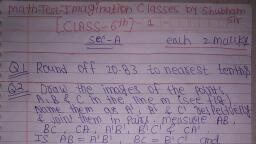 Math-Test-Imagination Classes by Shubham Sir
[CLASS-6th]-1
Sec-A each 2 marks
Q1 Round off 20.83 to nearest tenths
Q2 Draw the images of the points
A, B & C in the line m
Name them as A', B' & C' respectively
& join them in pairs, measure AB,
BC, CA, A'B', B'C' & CA'
Is AB = A'B' BC = B'C' and